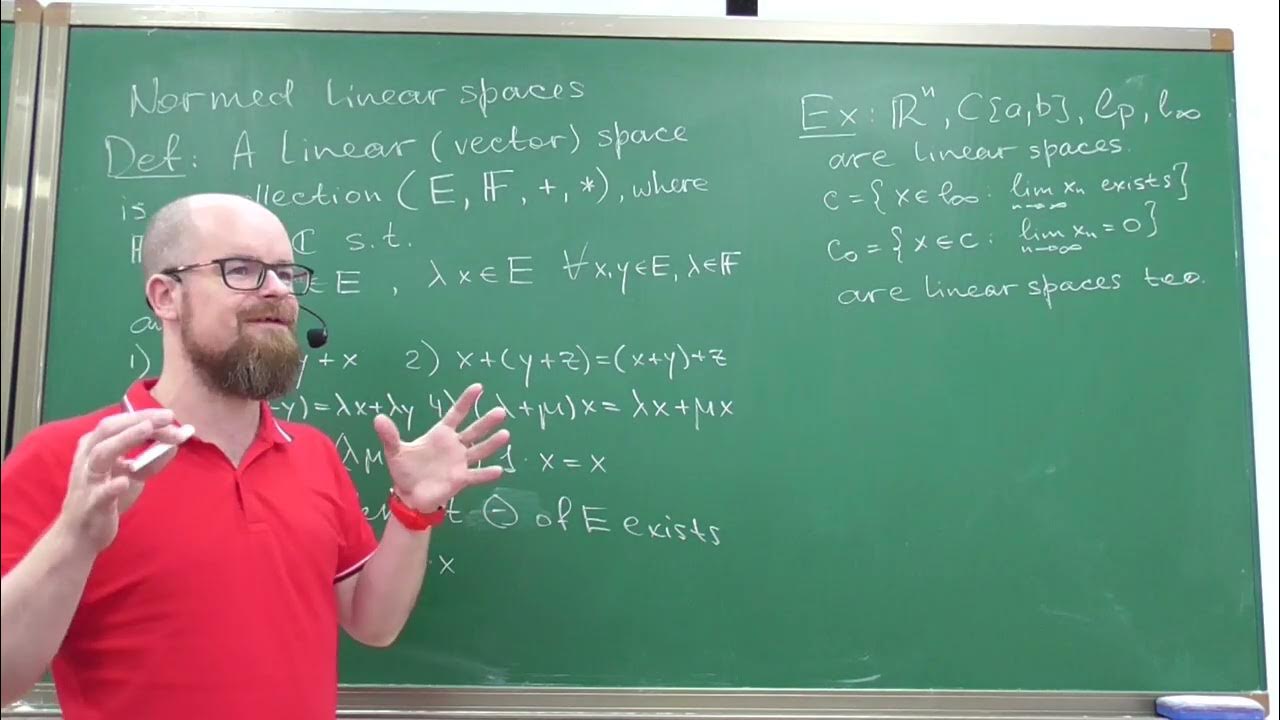 Normed linear spaces
Def: A linear (vector) space
is ollection (E, 𝔽, +, *), where
ℂ s.t.
∈E , λx∈E ∀x,y∈E, λ∈𝔽
1) y+x 2) x+(y+z)=(x+y)+z
-y)=λx+λy 4) (λ+μ)x=λx+μx
λμ , 1·x=x
Θ of E exists
·x
Ex: ℝⁿ, C[a,b], lp, l∞
are linear spaces.
c={x∈l∞: lim xn exists}
n→∞
c₀={x∈c: lim xn=0}
n→∞
are linear spaces too.